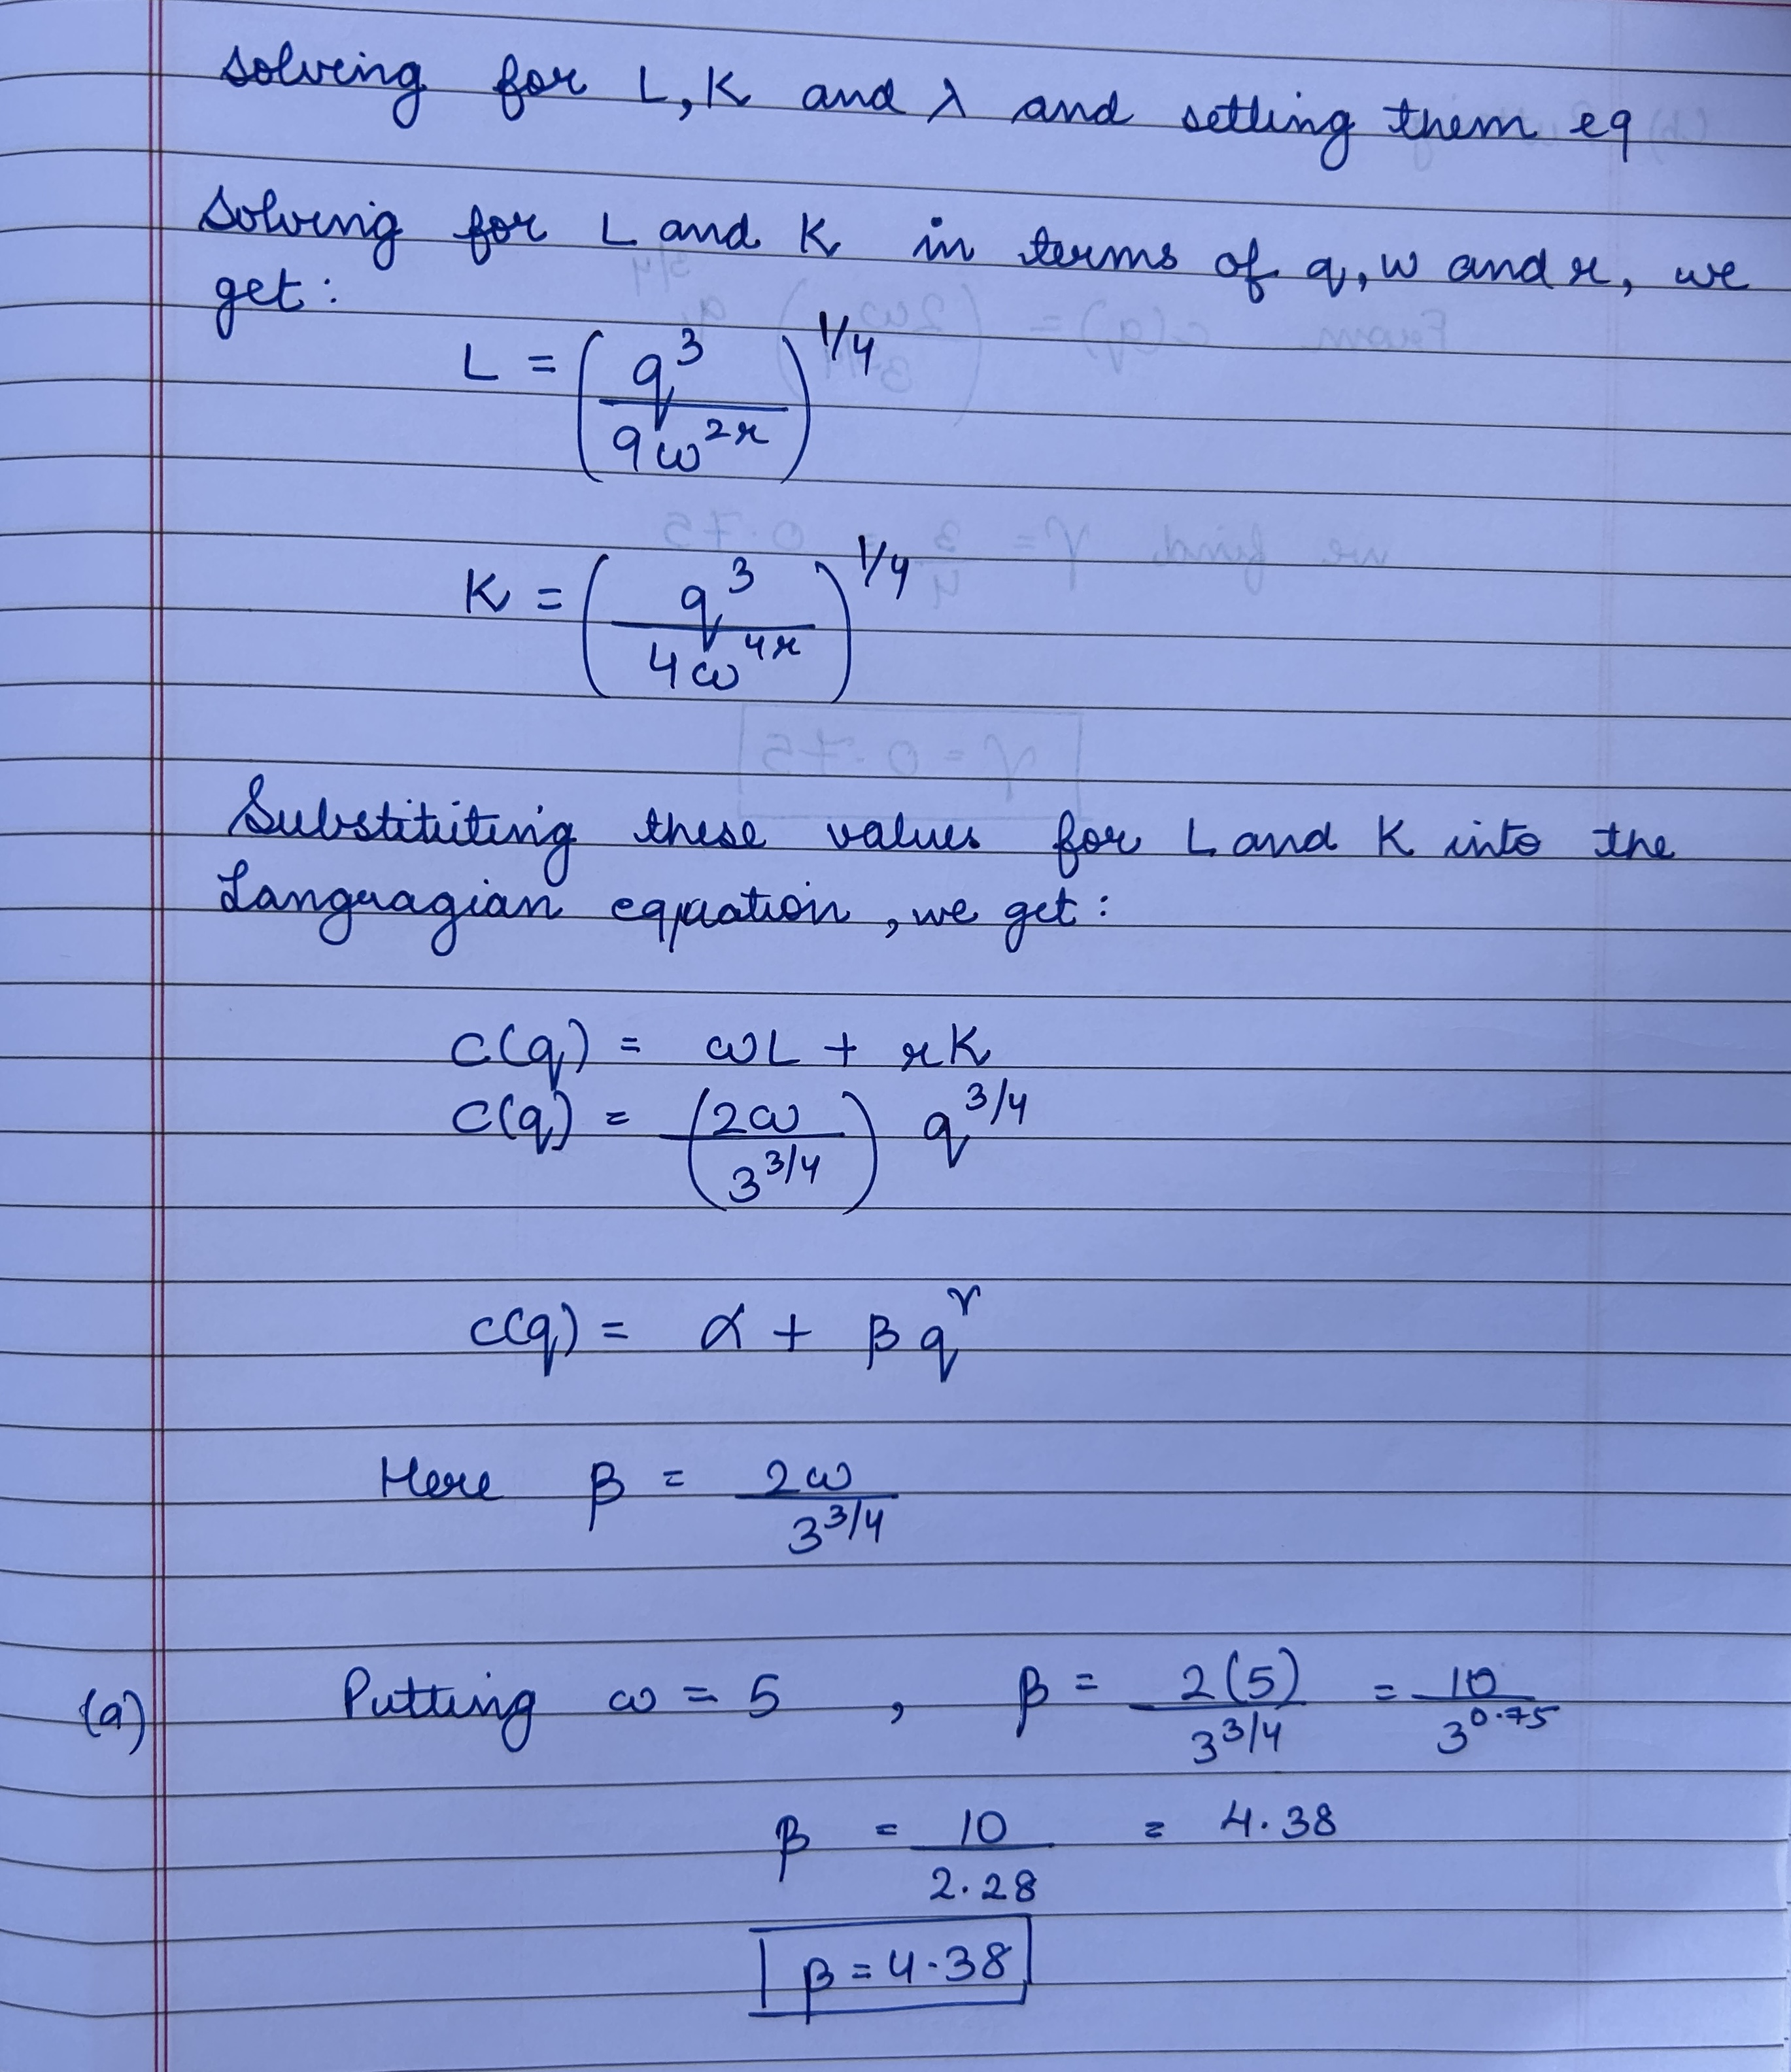 solving for L, K and λ and setting them eq
solving for L and K in terms of q, w and r, we
get:
L = (q^3 / 9ω^2r)^1/4
K = (q^3 / 4ω^4r)^1/4
Substituting these values for L and K into the
Languagian equation, we get:
C(q) = ωL + rK
C(q) = (2ω / 3^3/4) q^3/4
C(q) = α + β q^γ
Here β = 2ω / 3^3/4
(a) Putting ω = 5 , β = 2(5) / 3^3/4 = 10 / 3^0.75
β = 10 / 2.28 = 4.38
β = 4.38